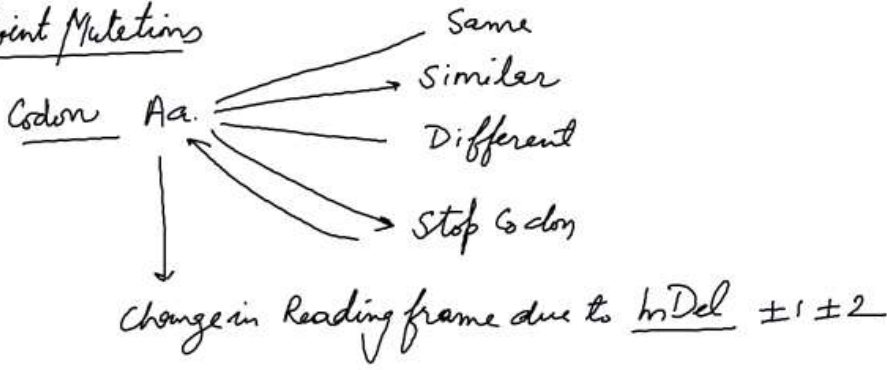 oint Mutetions
Same
Codon Aa.
Similar
Different
Stop Codon
Change in Reading frame due to InDel ±1 ±2